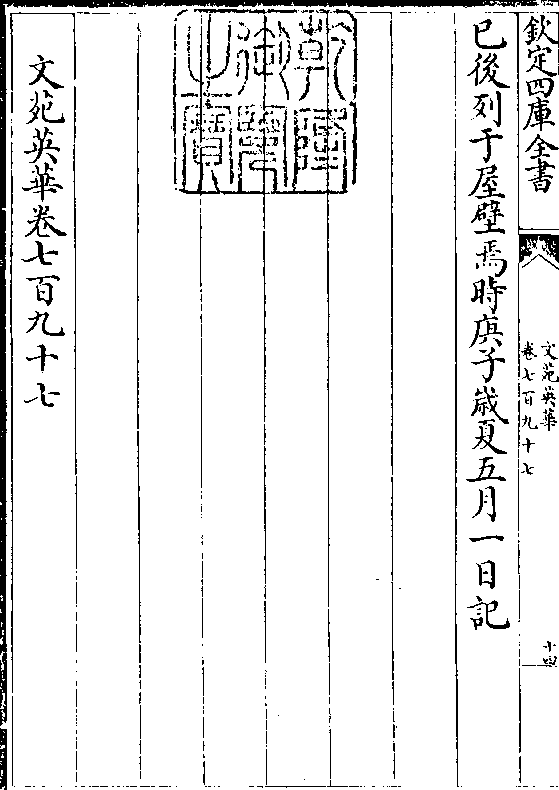 欽定四庫全書
文苑英華
卷七百九十七
十四
已後列于屋壁焉時庚子歲夏五月一日記
乾隆
御覽
之寶
文苑英華卷七百九十七